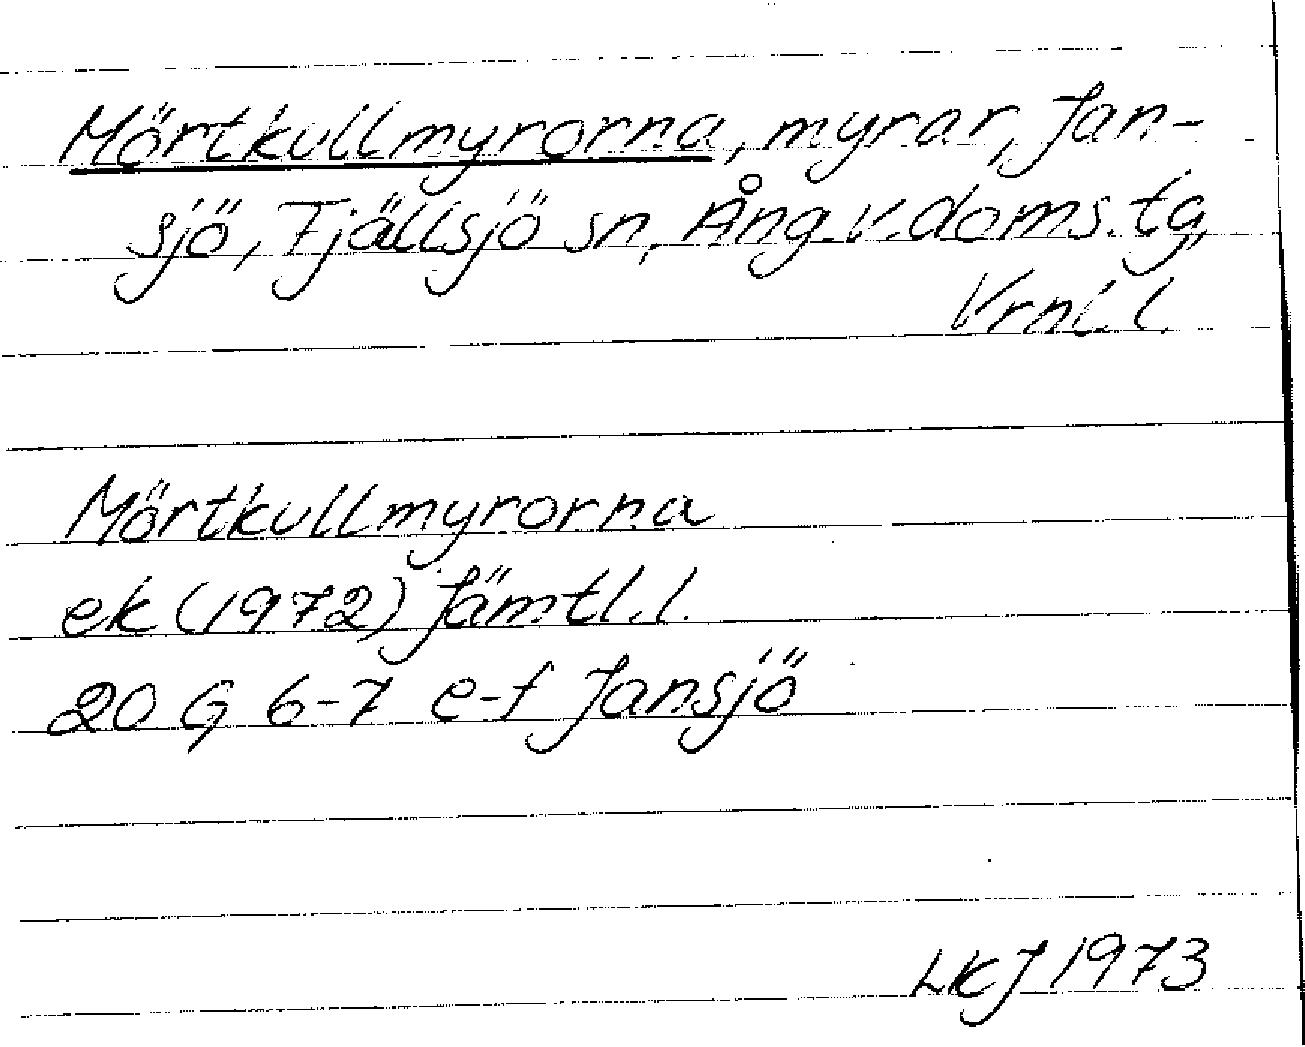 Mörtkullmyrorna, myrar, Jan-
sjö, Tjällsjö sn, Ång.v.doms.tg,
Vrnl.l.
Mörtkullmyrorna
ek (1972) Jämtl.l.
20 G 6-7 e-f Jansjö
LKJ 1973